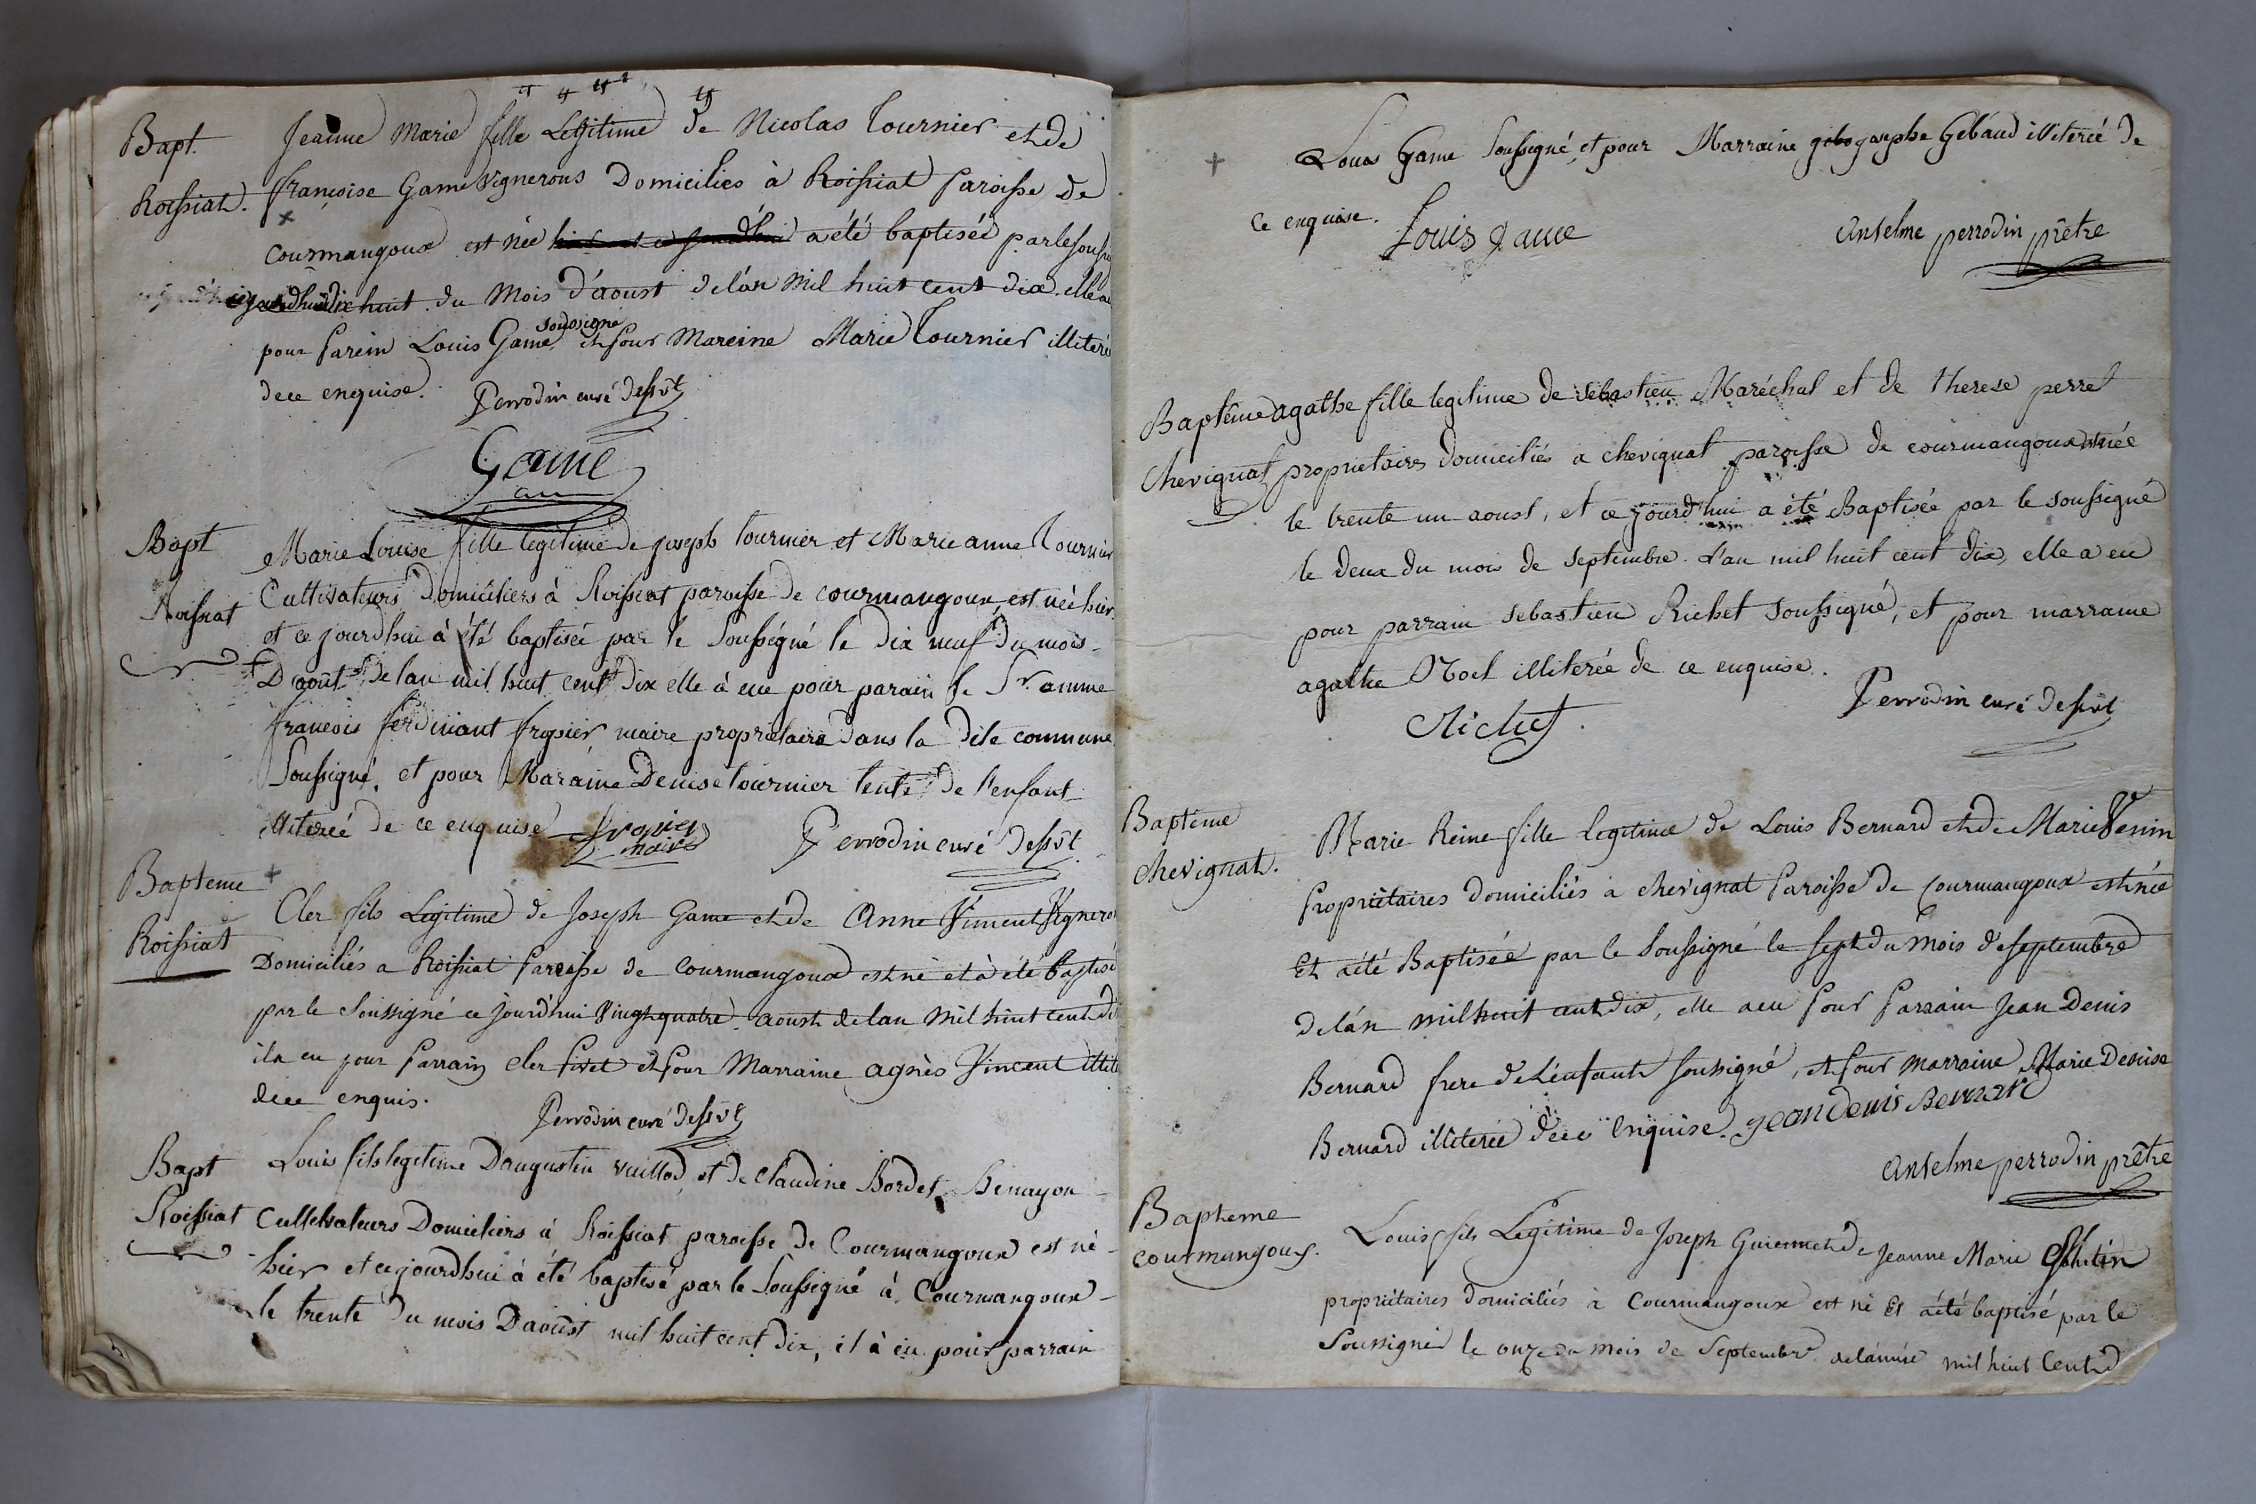 Bapt.
Roissiat.
Jeanne Marie fille Legitime de Nicolas Tournier et de
françoise Game vignerons Domiciliés à Roissiat Paroisse de
Courmangoux est née a été baptisée par le soussi
cejourdhui dix huit du Mois d'aoust de lán Mil huit cent dix. elle a
pour Parein Louis Game sousigné et pour Mareine Marie Tournier illiteré
dece enquise. Perrodin curé desst
Game
Bapt
Roissiat
Marie Louise fille legitime de joseph tournier et Marie anne Tournier
Cultivateurs Domiciliers à Roissiat paroisse de courmangoux est née hier
et ce jourdhui à été baptisée par le Soussigné le dix neuf du mois
D'août de lan mil huit cent dix elle à eue pour parain le Sr. amme
françois ferdinant frosier maire proprietaire dans la dite commune
Soussigné, et pour Maraine Denise tournier tente de l'enfant
illiterée de ce enquise maire Perrodin curé desst
Bapteme
Roissiat
Cler fils Legitime de Joseph Game et de Anne Vincent Vigneron
Domiciliés a Roissiat Paroisse de Courmangoux est né et à été baptisé
par le Soussigné ce jourd'hui Vingt quatre aoust de lan Mil huit cent di
il a eu pour Parrain Cler et pour Marraine agnès Vincent illite
dece enquis. Perrodin curé desst
Bapt
Roissiat
Louis fils legitime D'augustin vuillod et de Claudine Bordet Benayon
Cultivateurs Domiciliers à Roissiat paroisse de Courmangoux est né
hier et cejourdhui à été baptisé par le Soussigné à Courmangoux
le trente du mois D'août mil huit cent dix, il à eu pour parrain
Louis Game Soussigné, et pour Marraine josephe Gebaud illiterée de
ce enquise. Louis game Anselme perrodin prêtre
Baptême
Chevignat
agathe fille legitime de sebastien Maréchal et de therese perret
proprietaires domiciliés a chevignat paroisse de courmangoux est née
le trente un aoust, et ce jourd'hui a été Baptisée par le soussigné
le deux du mois de septembre. L'an mil huit cent dix, elle a eu
pour parrain sebastien Richet soussigné, et pour marraine
agathe Noel illiterée de ce enquise.
Richet. Perrodin curé desst
Baptême
chevignat.
Marie Reine fille legitime de Louis Bernard et de Marie Venin
Propriétaires domiciliés à chevignat Paroisse de Courmangoux est née
Et aété Baptisée par le Soussigné le sept du Mois de septembre
de lán mil huit cent dix, elle a eu Pour Parrain Jean Denis
Bernard frere de L'enfant soussigné, et Pour marraine Marie Denise
Bernard illiterée dece enquise. jean denis Bernard
Anselme perrodin prêtre
Bapteme
courmangoux.
Louis fils Legitime de Joseph Guiennet et de Jeanne Marie
propriétaires domiciliés à Courmangoux est né Et aété baptisé par le
Soussigné le onze du mois de Septembre de lánnée mil huit Cent d